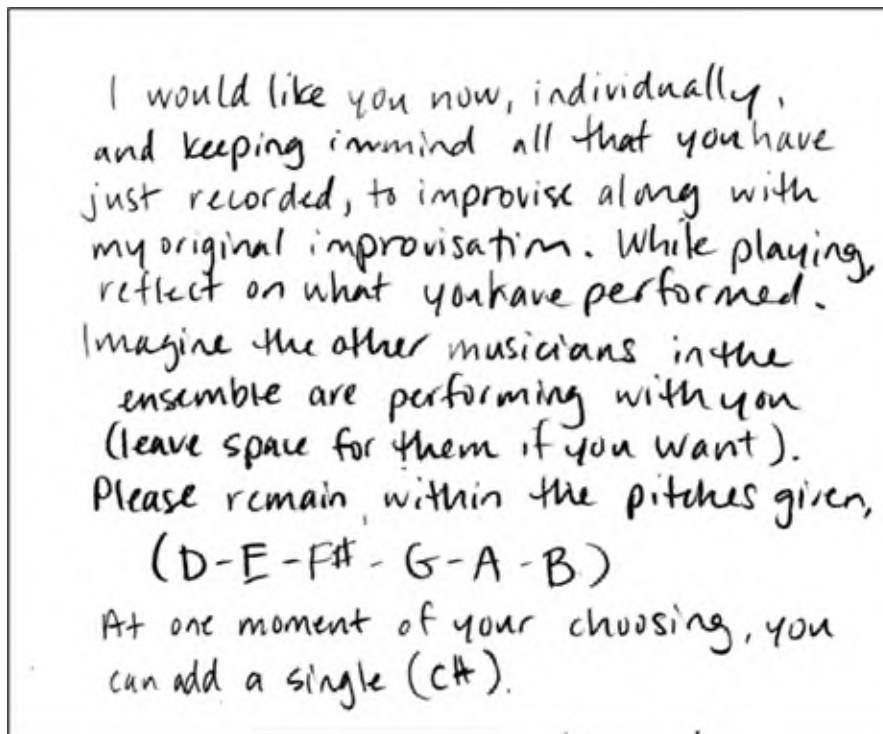 I would like you now, individually,
and keeping in mind all that you have
just recorded, to improvise along with
my original improvisation. While playing,
reflect on what you have performed.
Imagine the other musicians in the
ensemble are performing with you
(leave space for them if you want).
Please remain within the pitches given,
(D-E-F#-G-A-B)
At one moment of your choosing, you
can add a single (C#).